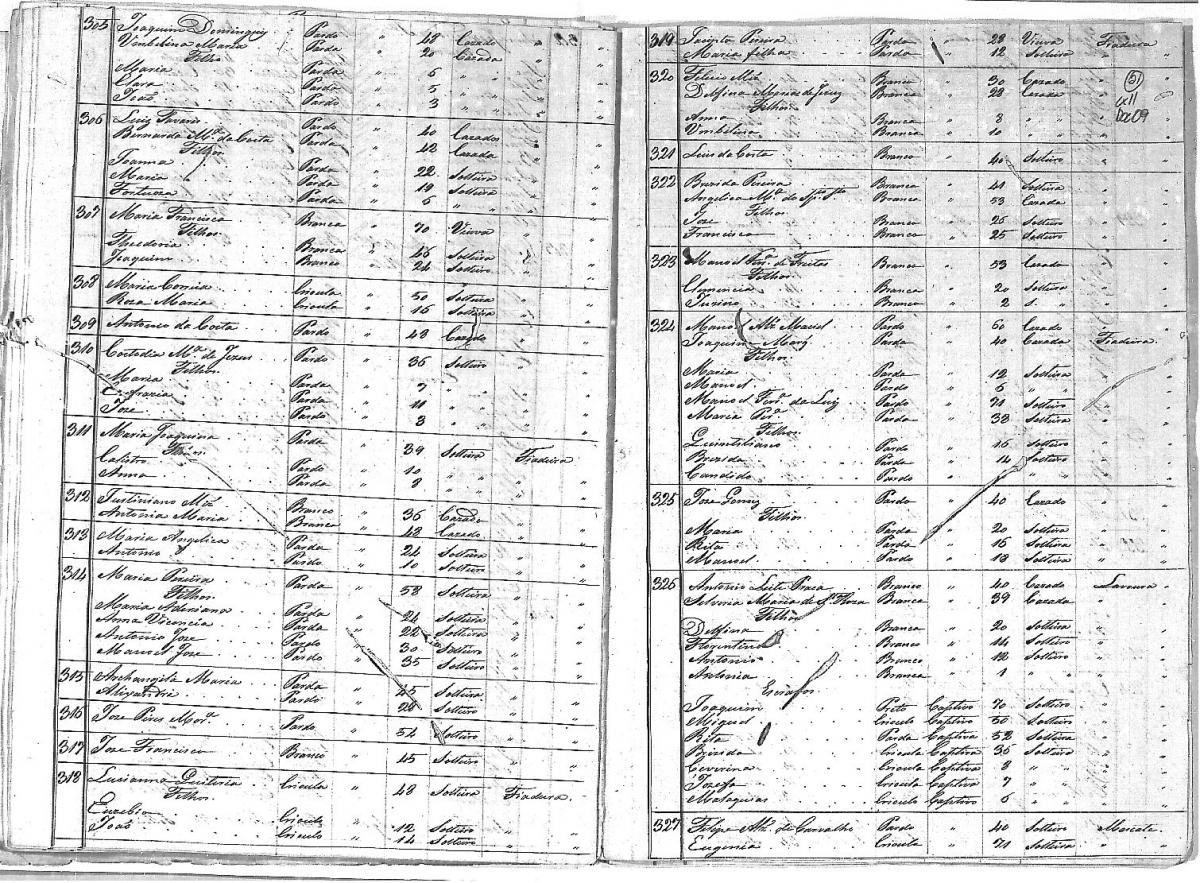 305 Joaquim Domingues Pardo " 48 Cazado "
Umbilina Maria Parda " 20 Cazada "
Filhos
Maria Parda " 6 " "
Clara Parda " 5 " "
João Pardo " 3 " "
306 Luiz Tavares Pardo " 40 Cazado "
Bernarda Mª da Costa Parda " 42 Cazada "
Filhos
Joanna Parda " 22 Solteira "
Maria Parda " 19 Solteira "
Fortunza Parda " 6 " "
307 Maria Francisca Branca " 70 Viuva "
Filhos
Theodoria Branca " 46 Solteira "
Joaquim Branco " 24 Solteiro "
308 Maria Correia Crioula " 50 Solteira "
Roza Maria Crioula " 16 Solteira "
309 Antonio da Costa Pardo " 48 Cazado "
310 Costodia Mª de Jezus Parda " 36 Solteira "
Filhos
Maria Parda " 7 " "
Parda " 11 " "
Joze Pardo " 3 " "
311 Maria Joaquina Parda " 39 Solteira Fiadeira
Filhos
Calistro Pardo " 10 " "
Anna Parda " 8 " "
312 Justiniano Miz Branco " 36 Cazado "
Antonia Maria Branca " 48 Cazada "
313 Maria Angelica Parda " 24 Solteira "
Antonio Pardo " 10 Solteiro "
314 Maria Pereira Parda " 58 Solteira "
Filhos
Maria Adriana Parda " 24 Solteira "
Anna Vicencia Parda " 22 Solteira "
Antonio Joze Pardo " 30 Solteiro "
Manoel Joze Pardo " 35 Solteiro "
315 Archangela Maria Parda " 45 Solteira "
Alixandre Pardo " 24 Solteiro "
316 Joze Pires Morª Pardo " 54 Solteiro "
317 Joze Francisco Branco " 45 Solteiro "
318 Lucianna Quiteria Crioula " 48 Solteira Fiadeira
Filhos
Euzebio Crioulo " 12 Solteiro "
João Crioulo " 14 Solteiro "
319 Jacinta Pereira Parda " 28 Viuva Fiadeira
Maria filha Parda " 12 Solteira "
320 Felicio Miz Branco " 30 Cazado "
Delfina Maria de Jezus Branca " 28 Cazada "
Filhos
Anna Branca " 8 " "
Umbilina Branca " 10 " "
51
cx 11
Doc 09
321 Luis da Costa Branco " 40 Solteiro "
322 Brizida Pereira Branca " 41 Solteira "
Angelica Mª do Spº Stº Branca " 53 Cazada "
Filhos
Joze Branco " 26 Solteiro "
Francisco Branco " 25 Solteiro "
323 Manoel Frª de Freitas Branco " 53 Cazado "
Filhos
Clemencia Branca " 20 Solteira "
Branco " 2 s. "
324 Manoel Maciel Pardo " 60 Cazado "
Joaquina Parda " 40 Cazada Fiadeira
Filhos
Maria Parda " 12 Solteira "
Manoel Pardo " 6 " "
Manoel Ferª da Luiz Pardo " 71 Solteiro "
Maria Perª Parda " 38 Solteira "
Filhos
Quintiliano Pardo " 16 Solteiro "
Brizida Parda " 14 Solteira "
Candido Pardo "
325 Joze Gomez Pardo " 40 Cazado "
Filhos
Maria Parda " 20 Solteira "
Rita Parda " 16 Solteira "
Manoel Pardo " 18 Solteiro "
326 Antonio Leite Praca Branco " 40 Cazado Lavoura
Silveria Maria de Sta Roza Branca " 39 Cazada "
Filhos
Delfina Branca " 20 Solteira "
Florentino Branco " 14 Solteiro "
Antonio Branco " 12 Solteiro "
Antonia Branca " 1 " "
Escravos
Joaquim Preto Captivo 70 Solteiro "
Miguel Crioulo Captivo 50 Solteiro "
Rita Parda Captiva 52 Solteira "
Brizida Crioula Captiva 36 Solteira "
Ceverina Crioula Captiva 8 " "
Jozefa Crioula Captiva 7 " "
Malaquias Crioulo Captivo 6 " "
327 Felipe Alz de Carvalho Pardo " 40 Solteiro Mascate
Eugenia Crioula " 71 Solteira "